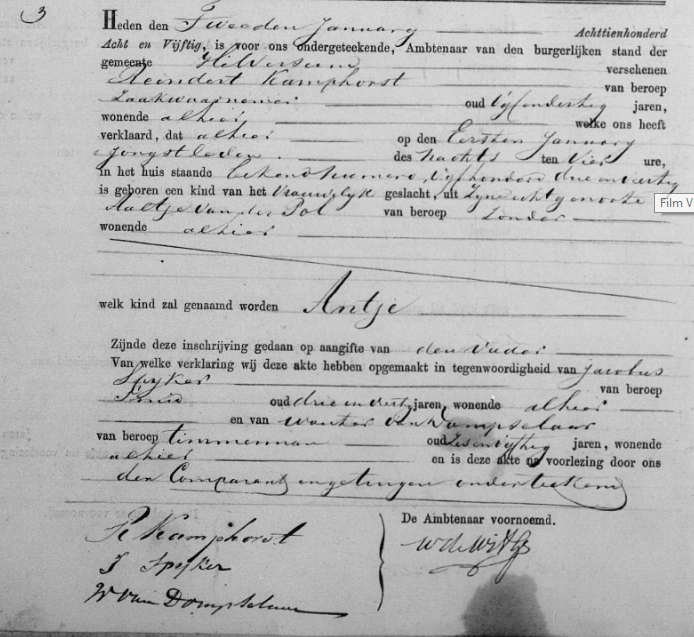 3
Heden den Tweeden January Achttienhonderd
Acht en Vijftig, is voor ons ondergeteekende, Ambtenaar van den burgerlijken stand der
gemeente Hilversum verschenen
Reindert Kamphorst van beroep
Zaakwaarnemer oud vijf en dertig jaren,
wonende alhier welke ons heeft
verklaard, dat alhier op den Eersten January
jongstleden des Nachts ten Vier ure,
in het huis staande bekend numero vijf honderd drie en veertig
is geboren een kind van het Vrouwelijk geslacht, uit Zyne echtgenoote
Aaltje van der Pol van beroep Zonder
wonende alhier
Film V
welk kind zal genaamd worden Antje
Zijnde deze inschrijving gedaan op aangifte van den vader
Van welke verklaring wij deze akte hebben opgemaakt in tegenwoordigheid van Jacobus
Spyker van beroep
Smid oud drie en veertig jaren, wonende alhier
en van Wouter van Dompselaar
van beroep timmerman oud Zes en Vijftig jaren, wonende
alhier en is deze akte na voorlezing door ons
den Comparant en getuigen onderteekend
De Ambtenaar voornoemd.
R Kamphorst
J Spyker
W van Dompselaar